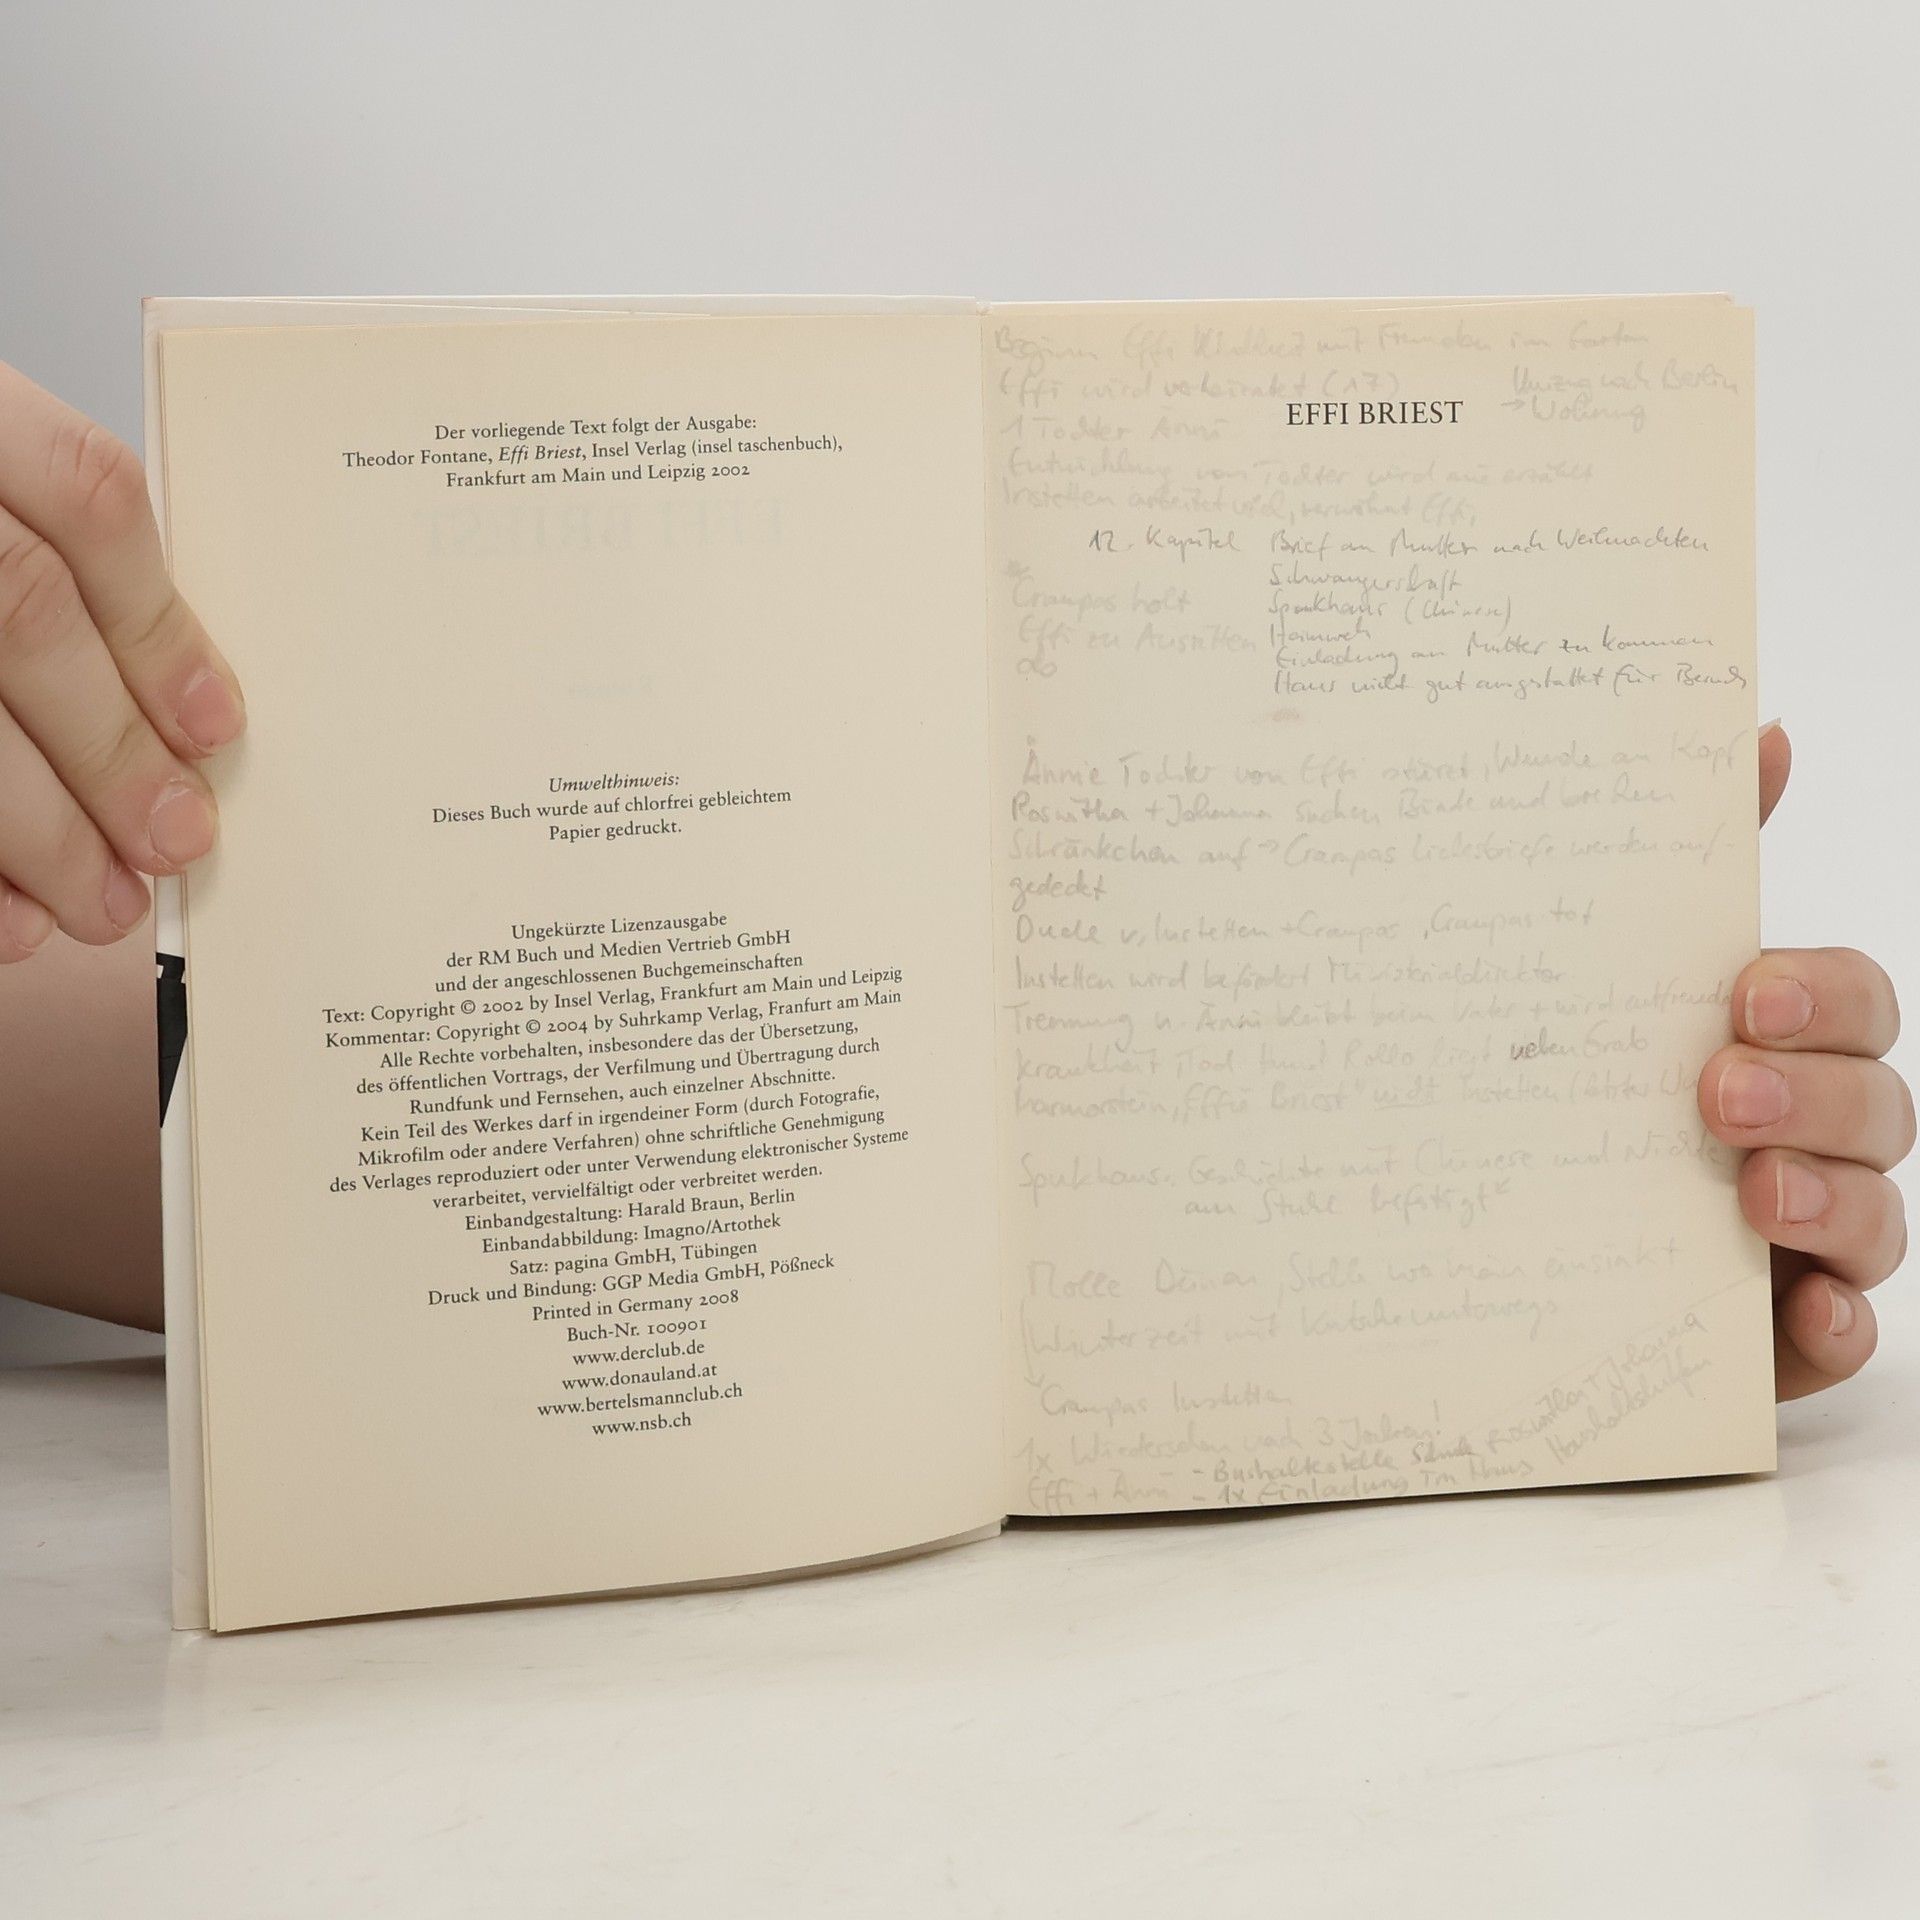 Der vorliegende Text folgt der Ausgabe:
Theodor Fontane, Effi Briest, Insel Verlag (insel taschenbuch),
Frankfurt am Main und Leipzig 2002
Umwelthinweis:
Dieses Buch wurde auf chlorfrei gebleichtem
Papier gedruckt.
Ungekürzte Lizenzausgabe
der RM Buch und Medien Vertrieb GmbH
und der angeschlossenen Buchgemeinschaften
Text: Copyright © 2002 by Insel Verlag, Frankfurt am Main und Leipzig
Kommentar: Copyright © 2004 by Suhrkamp Verlag, Franfurt am Main
Alle Rechte vorbehalten, insbesondere das der Übersetzung,
des öffentlichen Vortrags, der Verfilmung und Übertragung durch
Rundfunk und Fernsehen, auch einzelner Abschnitte.
Kein Teil des Werkes darf in irgendeiner Form (durch Fotografie,
Mikrofilm oder andere Verfahren) ohne schriftliche Genehmigung
des Verlages reproduziert oder unter Verwendung elektronischer Systeme
verarbeitet, vervielfältigt oder verbreitet werden.
Einbandgestaltung: Harald Braun, Berlin
Einbandabbildung: Imagno/Artothek
Satz: pagina GmbH, Tübingen
Druck und Bindung: GGP Media GmbH, Pößneck
Printed in Germany 2008
Buch-Nr. 100901
www.derclub.de
www.donauland.at
www.bertelsmannclub.ch
www.nsb.ch
Beginn Effi mit Freunden im Garten
Effi wird verheiratet (17)
Umzug nach Berlin
→ Wohnung
EFFI BRIEST
1 Tochter Änni
Entwicklung von Tochter wird nie erzählt
Instetten arbeitet viel, verwöhnt Effi,
12. Kapitel Brief an Mutter nach Weihnachten
Schwangerschaft
Spukhaus (Chinese)
Heimweh
Einladung an Mutter zu kommen
Haus nicht gut ausgestattet für Besuch
Crampas holt
Effi zu Ausritten
ab
Ännie Tochter von Effi stürzt, Wunde am Kopf
Roswitha + Johanna suchen Binde und brechen
Schränkchen auf → Crampas Liebesbriefe werden auf-
gedeckt
Duell v. Instetten + Crampas, Crampas tot
Instetten wird befördert Ministerialdirektor
Trennung u. Änni bleibt beim Vater + wird entfremdet
Krankheit, Tod Hund Rollo liegt neben Grab
Marmorstein, Effi Briest nicht Instetten (letzter
Spukhaus: Geschichte mit Chinese und Nichte
am Stuhl befestigt
Stelle wo man einsinkt
Winterzeit mit Kutsche unterwegs
Crampas Instetten
1x Wiedersehen nach 3 Jahren!
Effi + Änni - Bushaltestelle
- 1x Einladung im Haus
Roswitha + Johanna
Haushaltshilfen